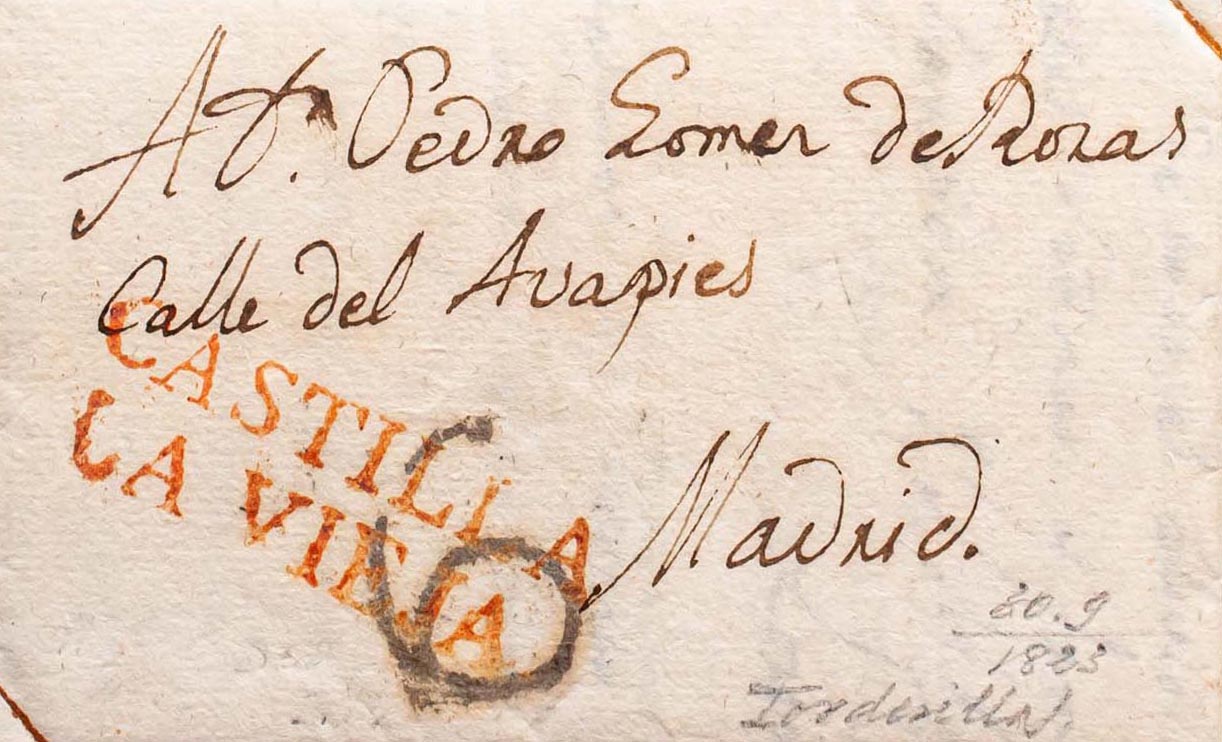 A D.n Pedro Gomez de Rozas
Calle del Avapies
CASTILLA
LA VIEJA
Madrid.
20.9
1823
Tordesillas